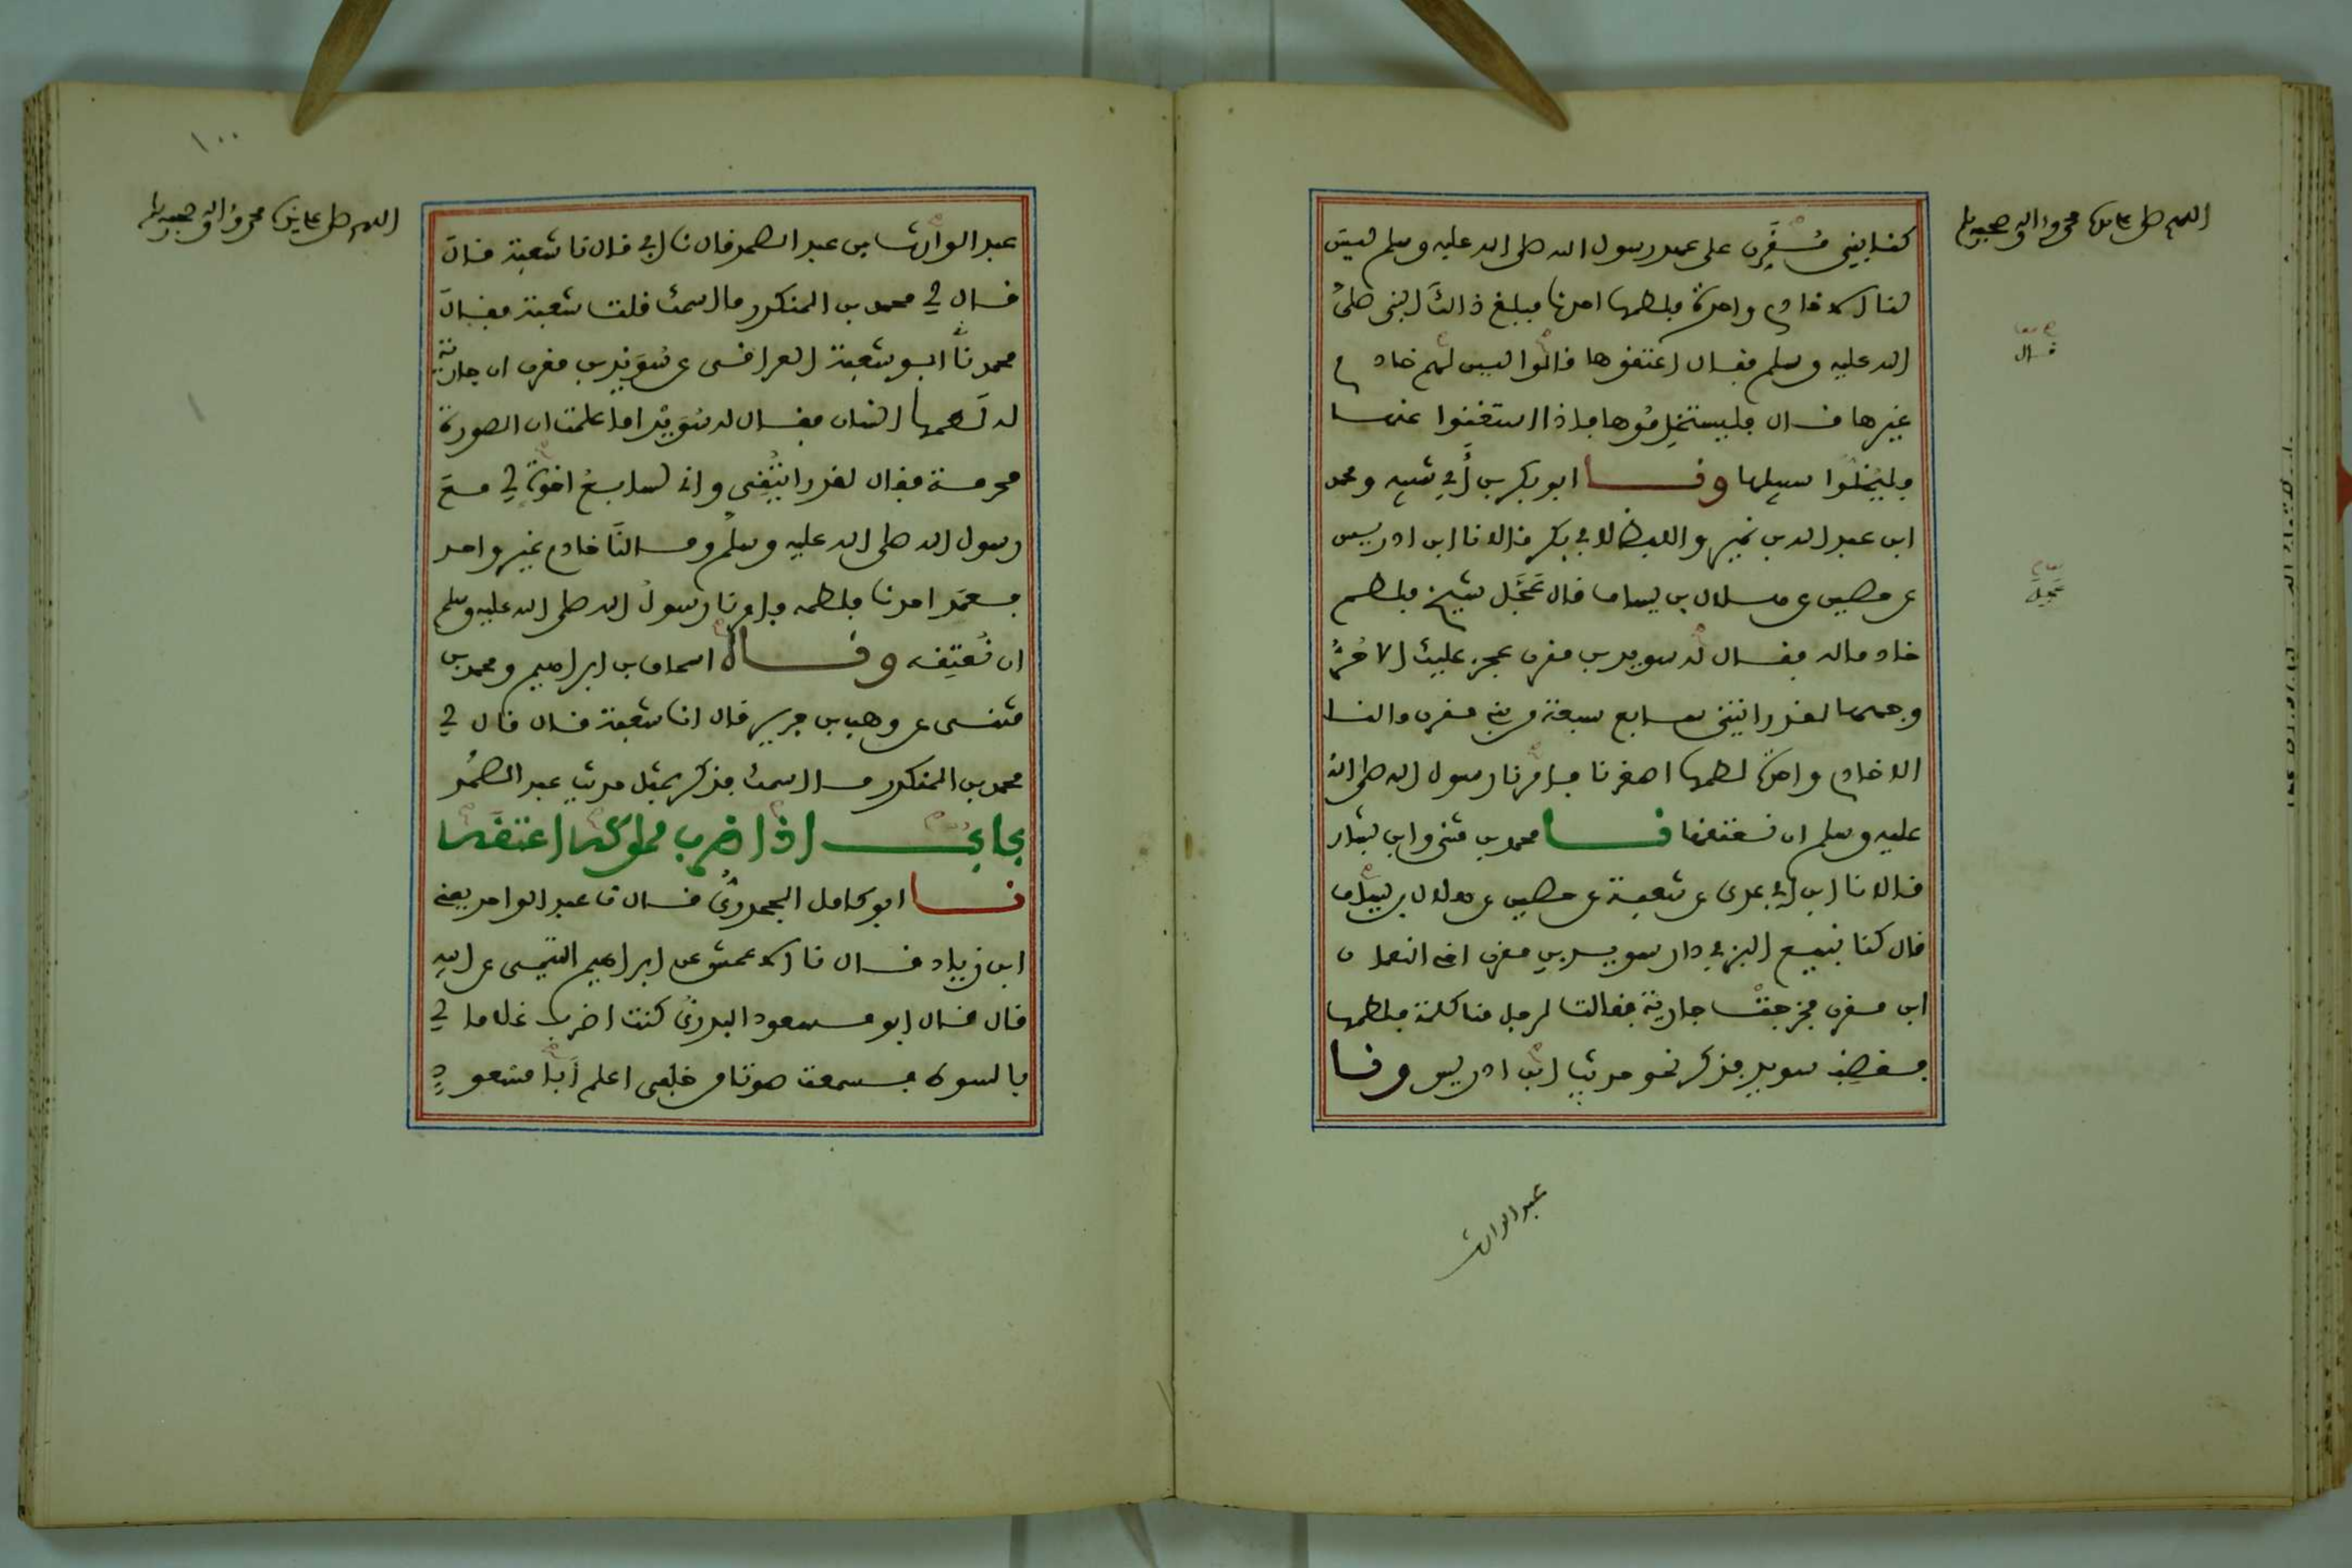 اللهم صل على سيدنا محمد وآله وصحبه وسلم
كنا بني مُقَرِّن على عهد رسول الله صلى الله عليه وسلم ليس
لنا الا خادم واحدة فلطمها احدنا فبلغ ذالك النبي صلى
الله عليه وسلم فقال اعتقوها قالوا ليس لهم خادم
غيرها قال فليستخدموها فاذا استغنوا عنها
فليخلوا سبيلها ونا ابو بكر بن أبي شيبه ومحمد
ابن عبد الله بن نمير واللفظ لابي بكر قالا نا ابن ادريس
عن حصين عن هلال بن يساف قال عَجَّل شيخ فلطم
خادما له فقال له سويد بن مقرن عجز عليك الا حُرُّ
وجهها لقد رايتني سابع سبعة من بني مقرن ما لنا
الا خادم واحدة لطمها اصغرنا فامرنا رسول الله صلى الله
عليه وسلم ان نعتقها نا محمد بن مثنى وابن بشار
قالا نا ابن ابي عدي عن شعبة عن حصين عن هلال بن يساف
قال كنا نبيع البز في دار سويد بن مقرن اخي النعمان
ابن مقرن فخرجت جارية فقالت لرجل منا كلمة فلطمها
فغضب سويد فذكر نحو حديث ابن ادريس ونا
قال
عَجَّلَ
عبد الوارث
١٠٠
اللهم صل على سيدنا محمد وآله وصحبه وسلم
عبد الوارث بن عبد الصمد قال نا ابي قال نا شعبة قال
قال لي محمد بن المنكدر ما اسمك قلت شعبة فقال
محمد نا ابو شعبة العراقي عن سُوَيد بن مقرن ان جارية
له لَطَمها انسان فقال له سُوَيد اما علمت ان الصورة
محرمة فقال لقد رايتُني واني لسابع اخوة لي مع
رسول الله صلى الله عليه وسلم وما لنا خادم غير واحد
فعَمَد احدنا فلطمه فامرنا رسول الله صلى الله عليه وسلم
ان نُعتِقه ونا اسحاق بن ابراهيم ومحمد بن
مثنى عن وهب بن جرير قال انا شعبة قال قال لي
محمد بن المنكدر ما اسمك فذكر بمثل حديث عبد الصمد
باب اذا ضرب مملوكه اعتقه
نا ابو كامل الجحدري قال نا عبد الواحد يعني
ابن زياد قال نا الاعمش عن ابراهيم التيمي عن ابيه
قال قال ابو مسعود البدري كنت اضرب غلاما لي
بالسوط فسمعت صوتا من خلفي اعلم أبا مسعود